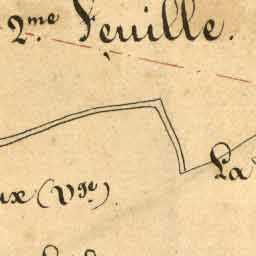 2.me Feuille.
La
ux (Vge).